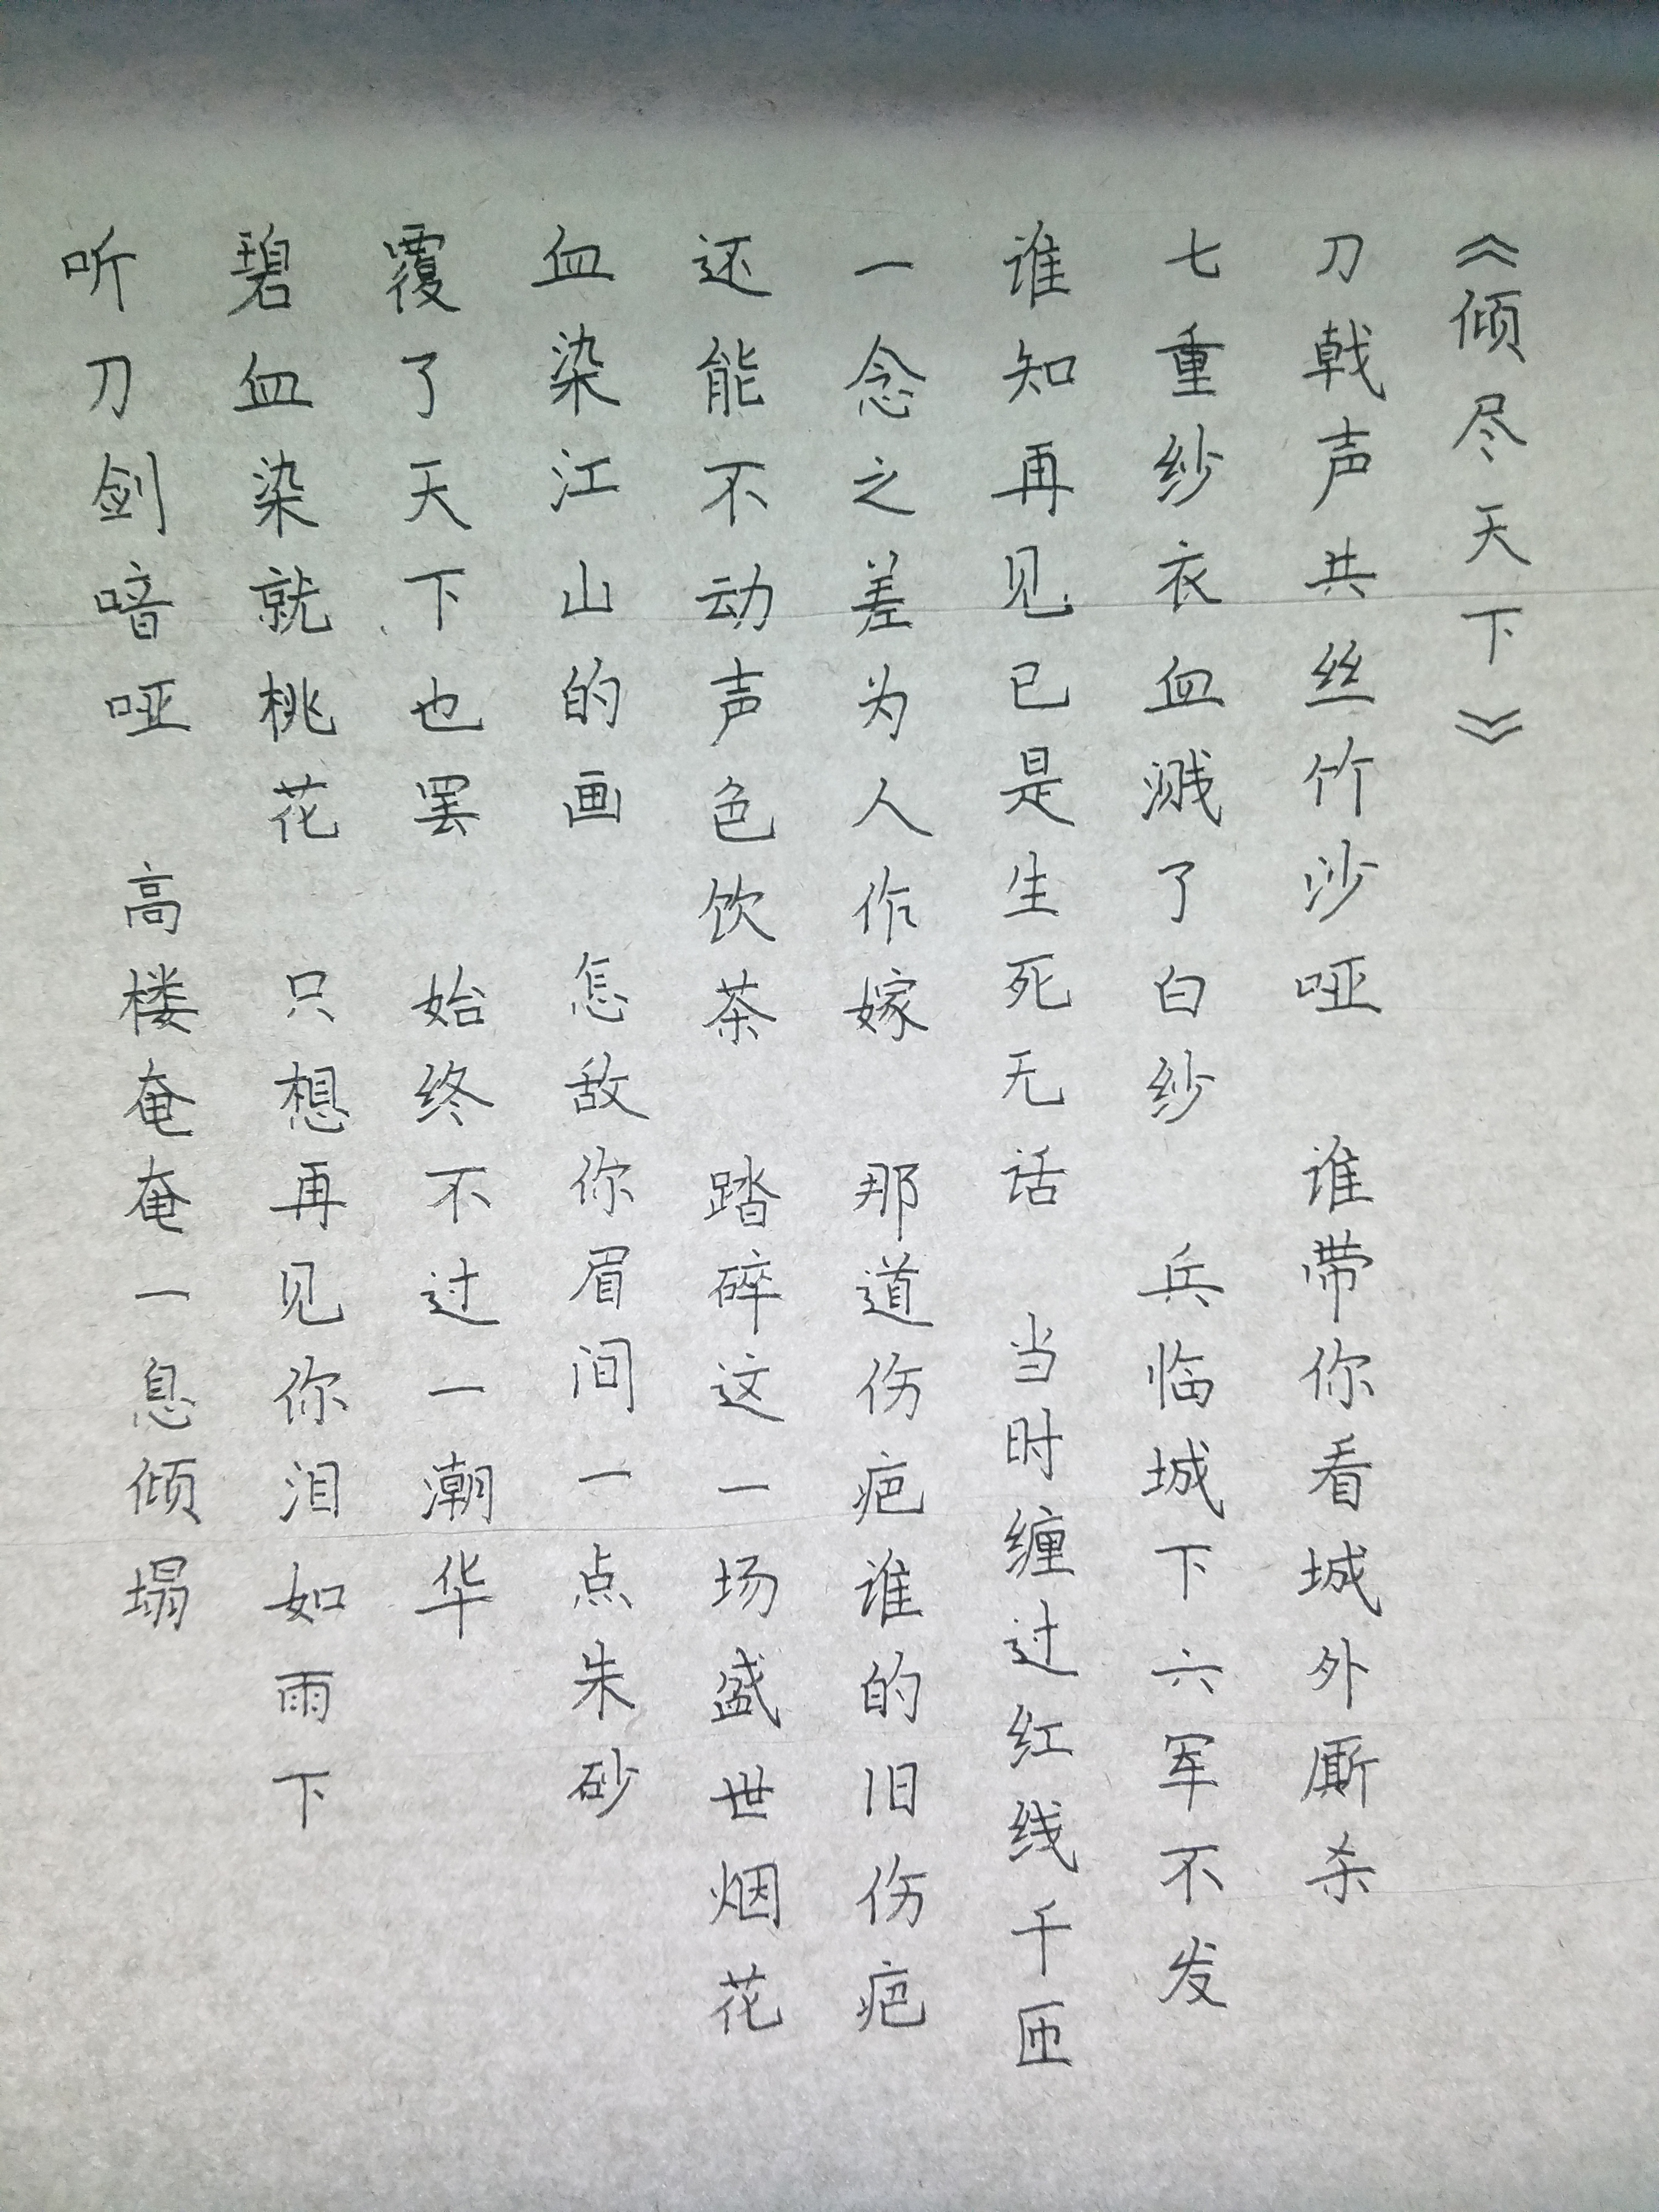 《倾尽天下》
刀戟声共丝竹沙哑 谁带你看城外厮杀
七重纱衣血溅了白纱 兵临城下六军不发
谁知再见已是生死无话 当时缠过红线千匝
一念之差为人作嫁 那道伤疤谁的旧伤疤
还能不动声色饮茶 踏碎这一场盛世烟花
血染江山的画 怎敌你眉间一点朱砂
覆了天下也罢 始终不过一潮华
碧血染就桃花 只想再见你泪如雨下
听刀剑喑哑 高楼奄奄一息倾塌